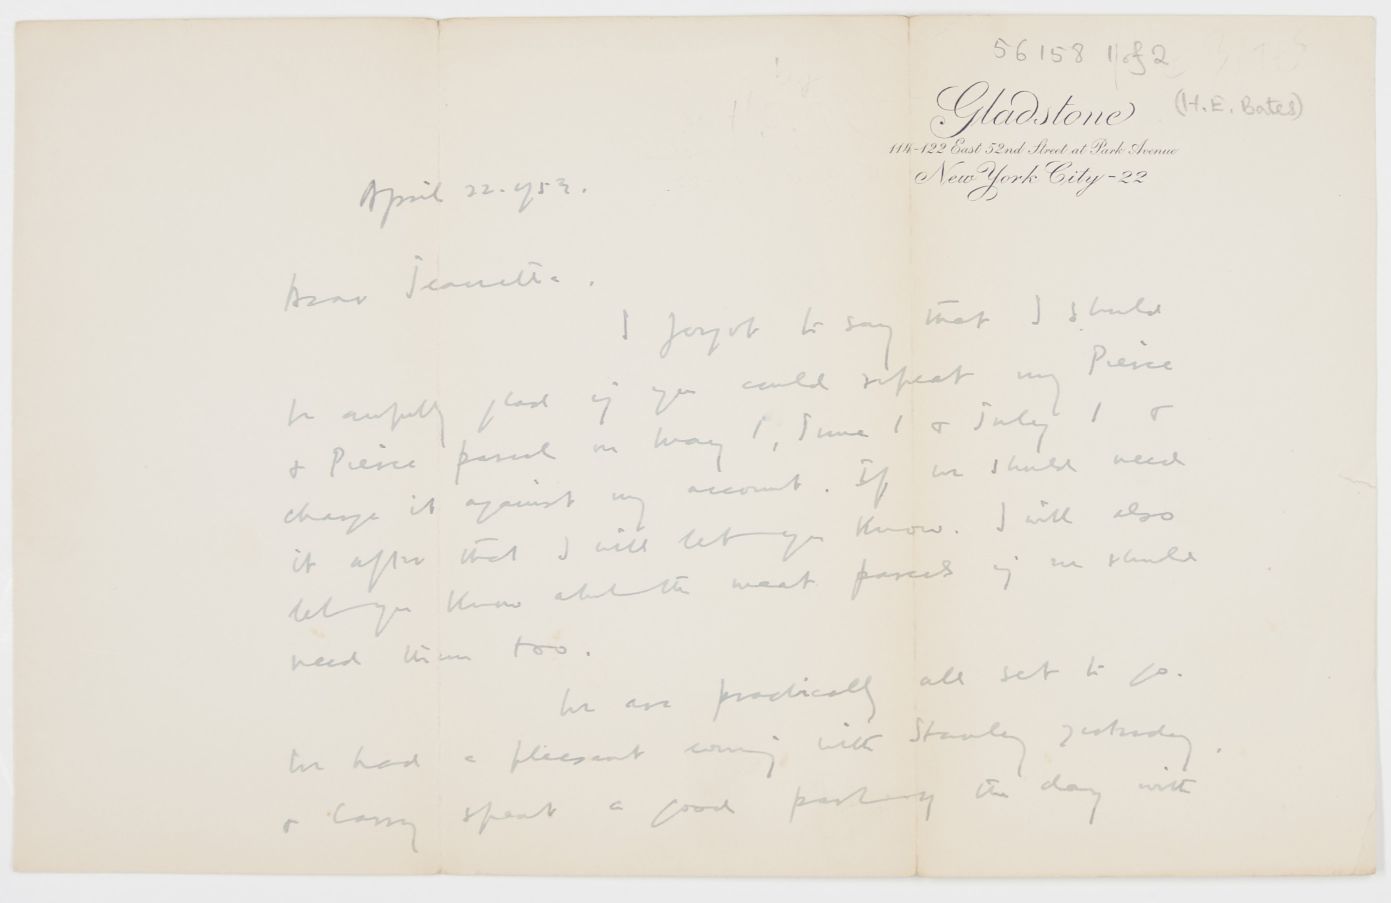 56158 1 of 2
(H.E. Bates)
Gladstone
114-122 East 52nd Street at Park Avenue
New York City-22
April 22. 1953.
Dear Jeannette.
I forgot to say that I should
be awfully glad if you could repeat my Pierce
& Pierce parcel on May 1, June 1 & July 1 &
charge it against my account. If we should need
it after that I will let you know. I will also
let you know about the meat parcels if we should
need them too.
We are practically all set to go.
We had a pleasant evening with Stanley yesterday.
& Larry spent a good part of the day with